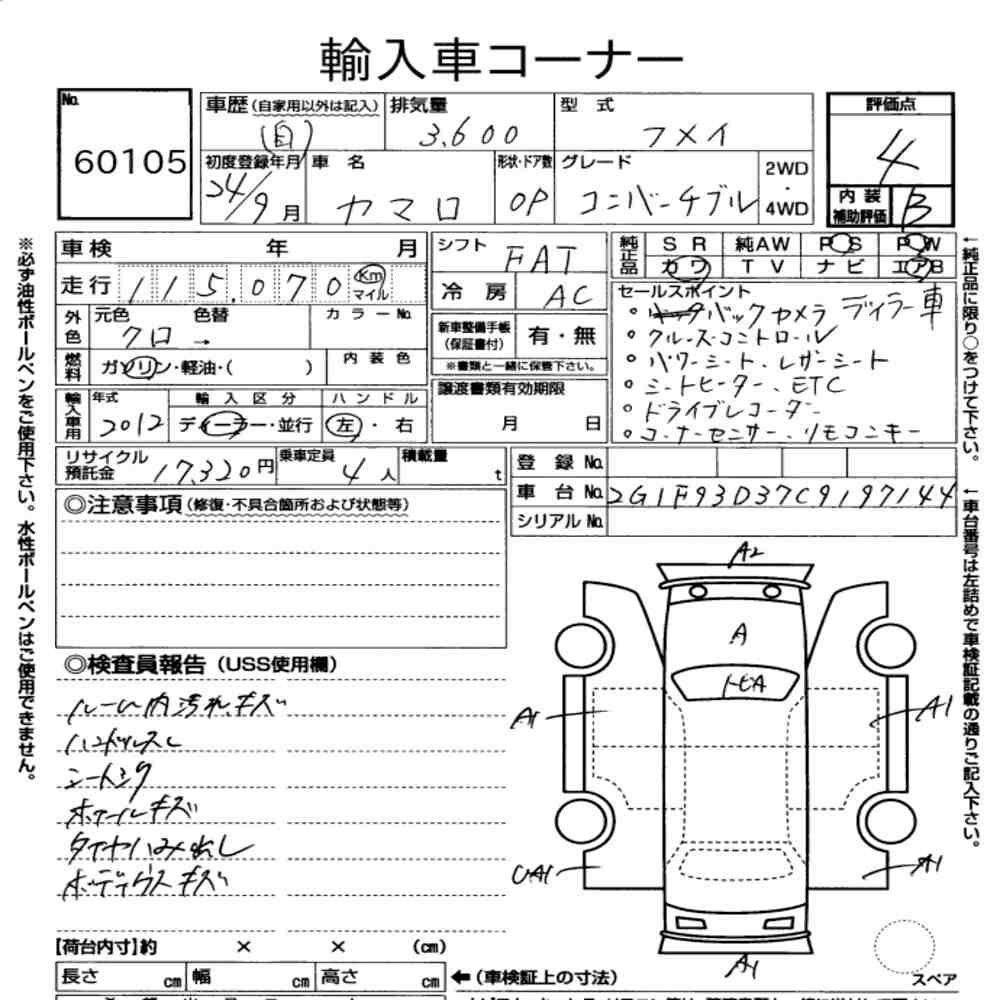 輸入車コーナー
No.
60105
車歴(自家用以外は記入)
(自)
排気量
3.600
型式
フメイ
評価点
4
初度登録年月
24/9月
車名
カマロ
形状・ドア数
OP
グレード
コンバーチブル
2WD
・
4WD
内装
補助評価
B
車検 年 月
シフト
FAT
純正品
SR 純AW PS PW
カワ TV ナビ エアB
走行 115.070 Km
マイル
冷房
AC
セールスポイント
・バックカメラ ディーラー車
・クルーズコントロール
・パワーシート、レザーシート
・シートヒーター、ETC
・ドライブレコーダー
・コーナーセンサー、リモコンキー
外色
元色 色替
クロ →
カラーNo.
新車整備手帳
(保証書付)
有・無
※書類と一緒に保管下さい。
燃料
ガソリン・軽油・( )
内装色
譲渡書類有効期限
月 日
輸入車用
年式
2012
輸入区分
ディーラー・並行
ハンドル
左・右
リサイクル
預託金
17,320円
乗車定員
4人
積載量
t
登録No.
車台No. 2G1F93D37C9197144
シリアルNo.
◎注意事項(修復・不具合箇所および状態等)
◎検査員報告(USS使用欄)
ルーム内汚れ、キズ
ハンドルスレ
シートシワ
ホイールキズ
タイヤハミ出し
ボディガラスキズ
A2
A
トビA
A1
A1
UA1
A1
A1
スペア
【荷台内寸】約 × × (cm)
長さ cm 幅 cm 高さ cm ←(車検証上の寸法)
※必ず油性ボールペンをご使用下さい。水性ボールペンはご使用できません。
←純正品に限り○をつけて下さい。
←車台番号は左詰めで車検証記載の通りご記入下さい。